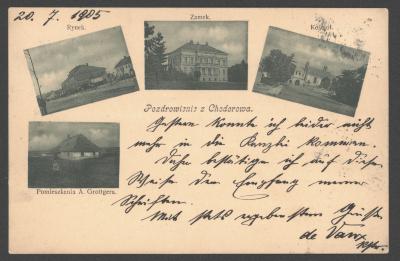 20. 7. 1905
Rynek.
Zamek.
Kościół.
Pozdrowienie z Chodorowa.
Pomieszkania A. Grottgera.
Gestern konnte ich leider nicht
mehr in die Kanzlei kommen.
Daher bestätige ich auf diese
Weise den Empfang meiner
Schriften.
Mit stets ergebenstem Gruße
de